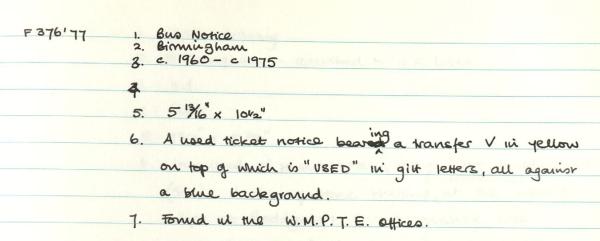 F376'77 1. Bus Notice
2. Birmingham
3. c. 1960 - c 1975
4
5. 5 13/16" x 10 1/2"
6. A used ticket notice bearing a transfer V in yellow
on top of which is "USED" in gilt letters, all against
a blue background.
7. Found at the W.M.P.T.E. offices.